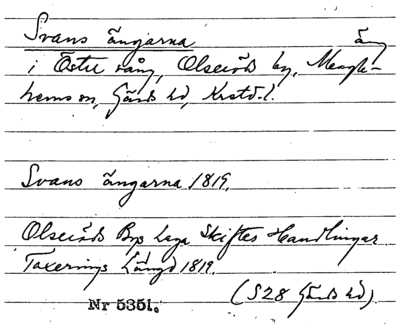 Svans ängarna äng
i Östre vång, Olseröds by, Maglehems sn, Gärds hd, Krstd.l.
Svans ängarna 1819.
Olseröds Bys Laga Skiftes Handlingar
Taxerings Längd 1819.
(S28 Gärds hd)
Nr 5351.